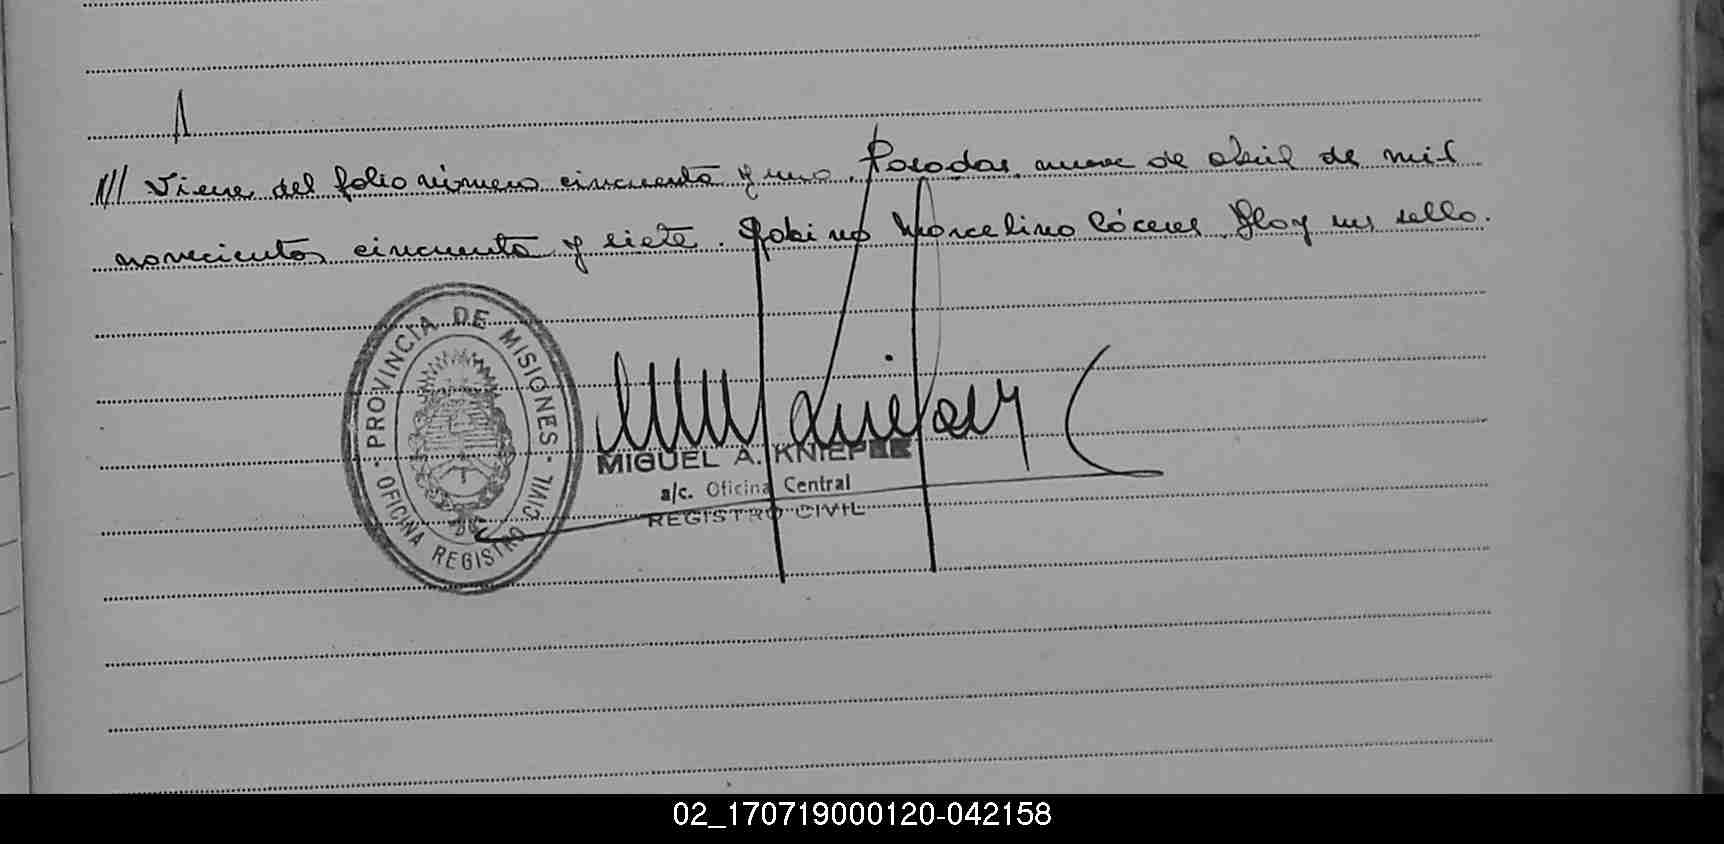 /// Viene del folio número cincuenta y uno. Posadas, nueve de abril de mil
novecientos cincuenta y siete. Gabino Marcelino Cáceres. Hay un sello.
PROVINCIA DE MISIONES
OFICINA REGISTRO CIVIL
MIGUEL A. KNIEPER
a/c. Oficina Central
REGISTRO CIVIL
02_170719000120-042158